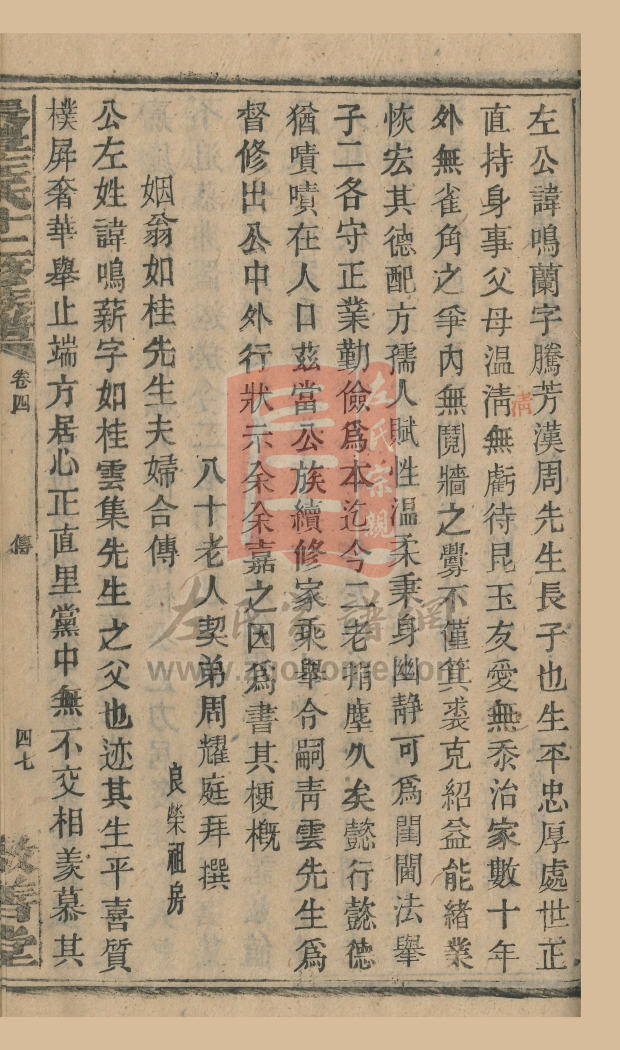 左公諱鳴蘭字騰芳漢周先生長子也生平忠厚處世正
直持身事父母温淸無虧待昆玉友愛無忝治家數十年
清
外無雀角之爭內無鬩牆之釁不僅箕裘克紹益能緒業
恢宏其德配方孺人賦性温柔秉身幽静可爲閨閫法舉
子二各守正業勤儉爲本迄今二老捐塵久矣懿行懿德
猶嘖嘖在人口茲當公族續修家乘舉令嗣靑雲先生爲
督修出公中外行狀示余余嘉之因爲書其梗槪
八十老人契弟周耀庭拜撰
姻翁如桂先生夫婦合傳
良榮祖房
公左姓諱鳴薪字如桂雲集先生之父也迹其生平喜質
樸屏奢華舉止端方居心正直里黨中無不交相羨慕其
卷四
傳
四七
敦善堂
左氏宗親
左氏家譜網